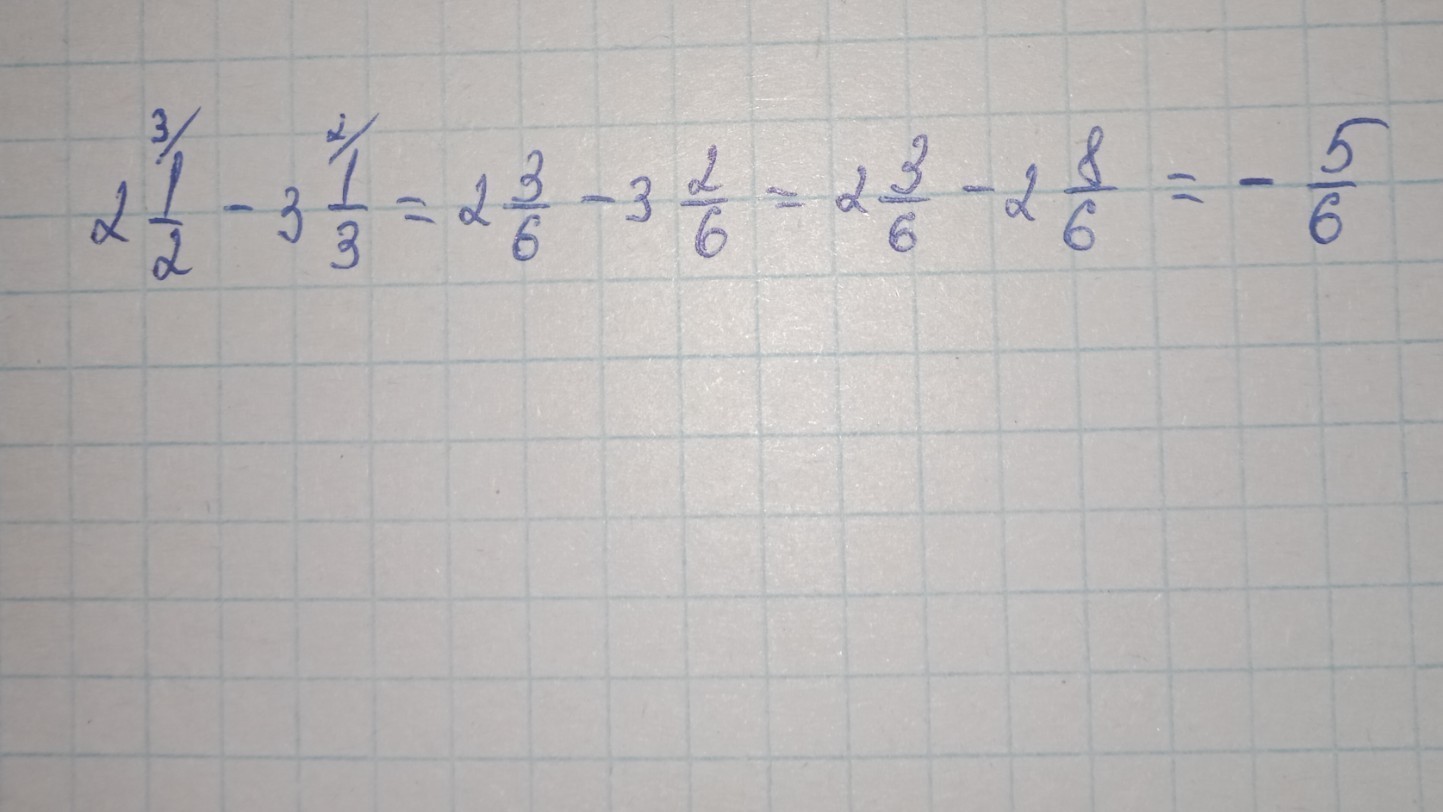 2 3/ 1/2 - 3 2/ 1/3 = 2 3/6 - 3 2/6 = 2 3/6 - 2 8/6 = - 5/6